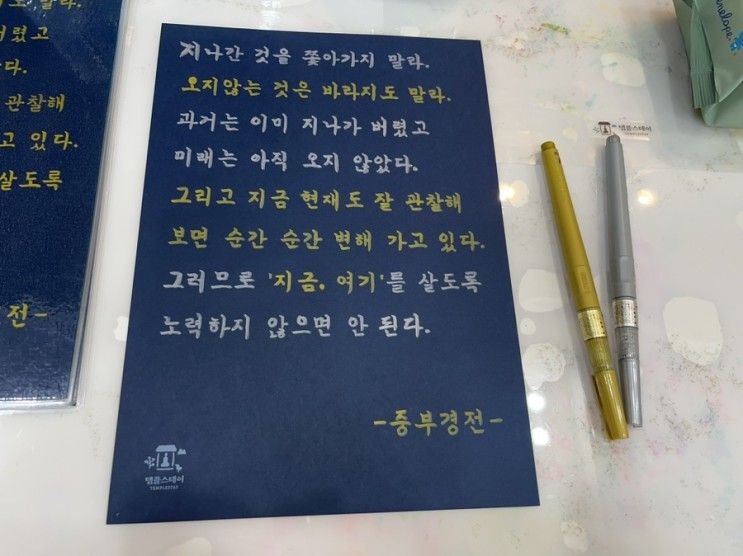 말라.
버렸고
다.
관찰해
고 있다.
살도록
전-
지나간 것을 쫓아가지 말라.
오지않는 것은 바라지도 말라.
과거는 이미 지나가 버렸고
미래는 아직 오지 않았다.
그리고 지금 현재도 잘 관찰해
보면 순간 순간 변해 가고 있다.
그러므로 '지금. 여기'를 살도록
노력하지 않으면 안 된다.
-중부경전-
템플스테이
TEMPLESTAY
템플스테이
TEMPLESTAY
enelope